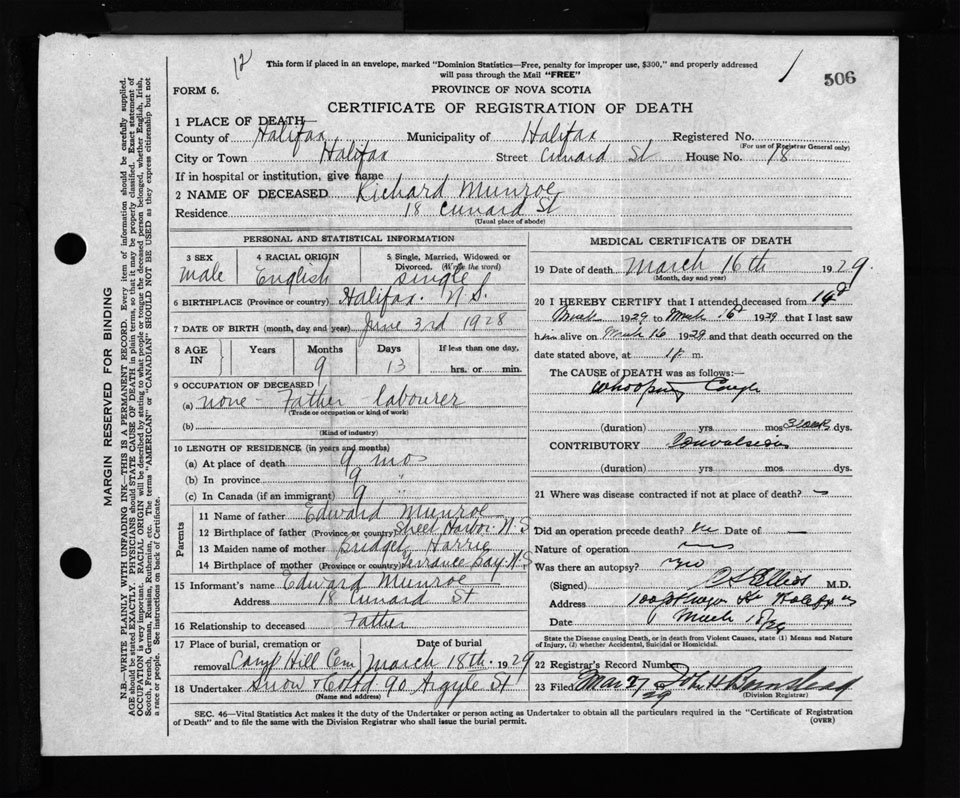 12
This form if placed in an envelope, marked "Dominion Statistics—Free, penalty for improper use, $300," and properly addressed
will pass through the Mail "FREE"
1 506
FORM 6. PROVINCE OF NOVA SCOTIA
CERTIFICATE OF REGISTRATION OF DEATH
1 PLACE OF DEATH—
County of Halifax Municipality of Halifax Registered No.
(For use of Registrar General only)
City or Town Halifax Street Cunard St House No. 18
If in hospital or institution, give name
2 NAME OF DECEASED Richard Munroe
Residence 18 Cunard St
(Usual place of abode)
PERSONAL AND STATISTICAL INFORMATION
3 SEX 4 RACIAL ORIGIN 5 Single, Married, Widowed or
Divorced. (Write the word)
Male English Single
6 BIRTHPLACE (Province or country) Halifax. N.S.
7 DATE OF BIRTH (month, day and year) June 3rd 1928
8 AGE IN Years Months Days If less than one day,
9 13 hrs. or min.
9 OCCUPATION OF DECEASED
(a) none - Father labourer
(Trade or occupation or kind of work)
(b)
(Kind of industry)
10 LENGTH OF RESIDENCE (in years and months)
(a) At place of death 9 mos
(b) In province 9 "
(c) In Canada (if an immigrant) 9
Parents
11 Name of father Edward Munroe
12 Birthplace of father (Province or country) Sheet Harbor N.S
13 Maiden name of mother Bridget Harrie
14 Birthplace of mother (Province or country) Terrance Bay. N.S
15 Informant's name Edward Munroe
Address 18 Cunard St
16 Relationship to deceased Father
17 Place of burial, cremation or Date of burial
removal Camp Hill Cem March 18th. 1929
18 Undertaker Snow & Co Ltd 90 Argyle St
(Name and address)
MEDICAL CERTIFICATE OF DEATH
19 Date of death March 16th 1929.
(Month, day and year)
20 I HEREBY CERTIFY that I attended deceased from 14
March 1929 to March 16 1929 that I last saw
him alive on March 16 1929 and that death occurred on the
date stated above, at m.
The CAUSE of DEATH was as follows:—
Whooping Cough
(duration) yrs. mos. 3 weeks dys.
CONTRIBUTORY Convulsions
(duration) yrs. mos. dys.
21 Where was disease contracted if not at place of death? —
Did an operation precede death? no Date of —
Nature of operation
Was there an autopsy? no
(Signed) Elliot M.D.
Address Halifax
Date March 18/29
State the Disease causing Death, or in death from Violent Causes, state (1) Means and Nature
of Injury, (2) whether Accidental, Suicidal or Homicidal.
22 Registrar's Record Number
23 Filed Mar 27 29 John H
(Division Registrar)
SEC. 46—Vital Statistics Act makes it the duty of the Undertaker or person acting as Undertaker to obtain all the particulars required in the "Certificate of Registration
of Death" and to file the same with the Division Registrar who shall issue the burial permit. (OVER)
MARGIN RESERVED FOR BINDING
N.B.—WRITE PLAINLY WITH UNFADING INK—THIS IS A PERMANENT RECORD. Every item of information should be carefully supplied.
AGE should be stated EXACTLY. PHYSICIANS should STATE CAUSE OF DEATH in plain terms, so that it may be properly classified. Exact statement of
OCCUPATION is very important. RACIAL ORIGIN will be described by stating to what people or tongue the deceased person belonged, whether English, Irish,
Scotch, French, German, Russian, Ruthenian, etc. The terms "AMERICAN" or "CANADIAN" SHOULD NOT BE USED as they express citizenship but not
a race or people. See instructions on back of Certificate.